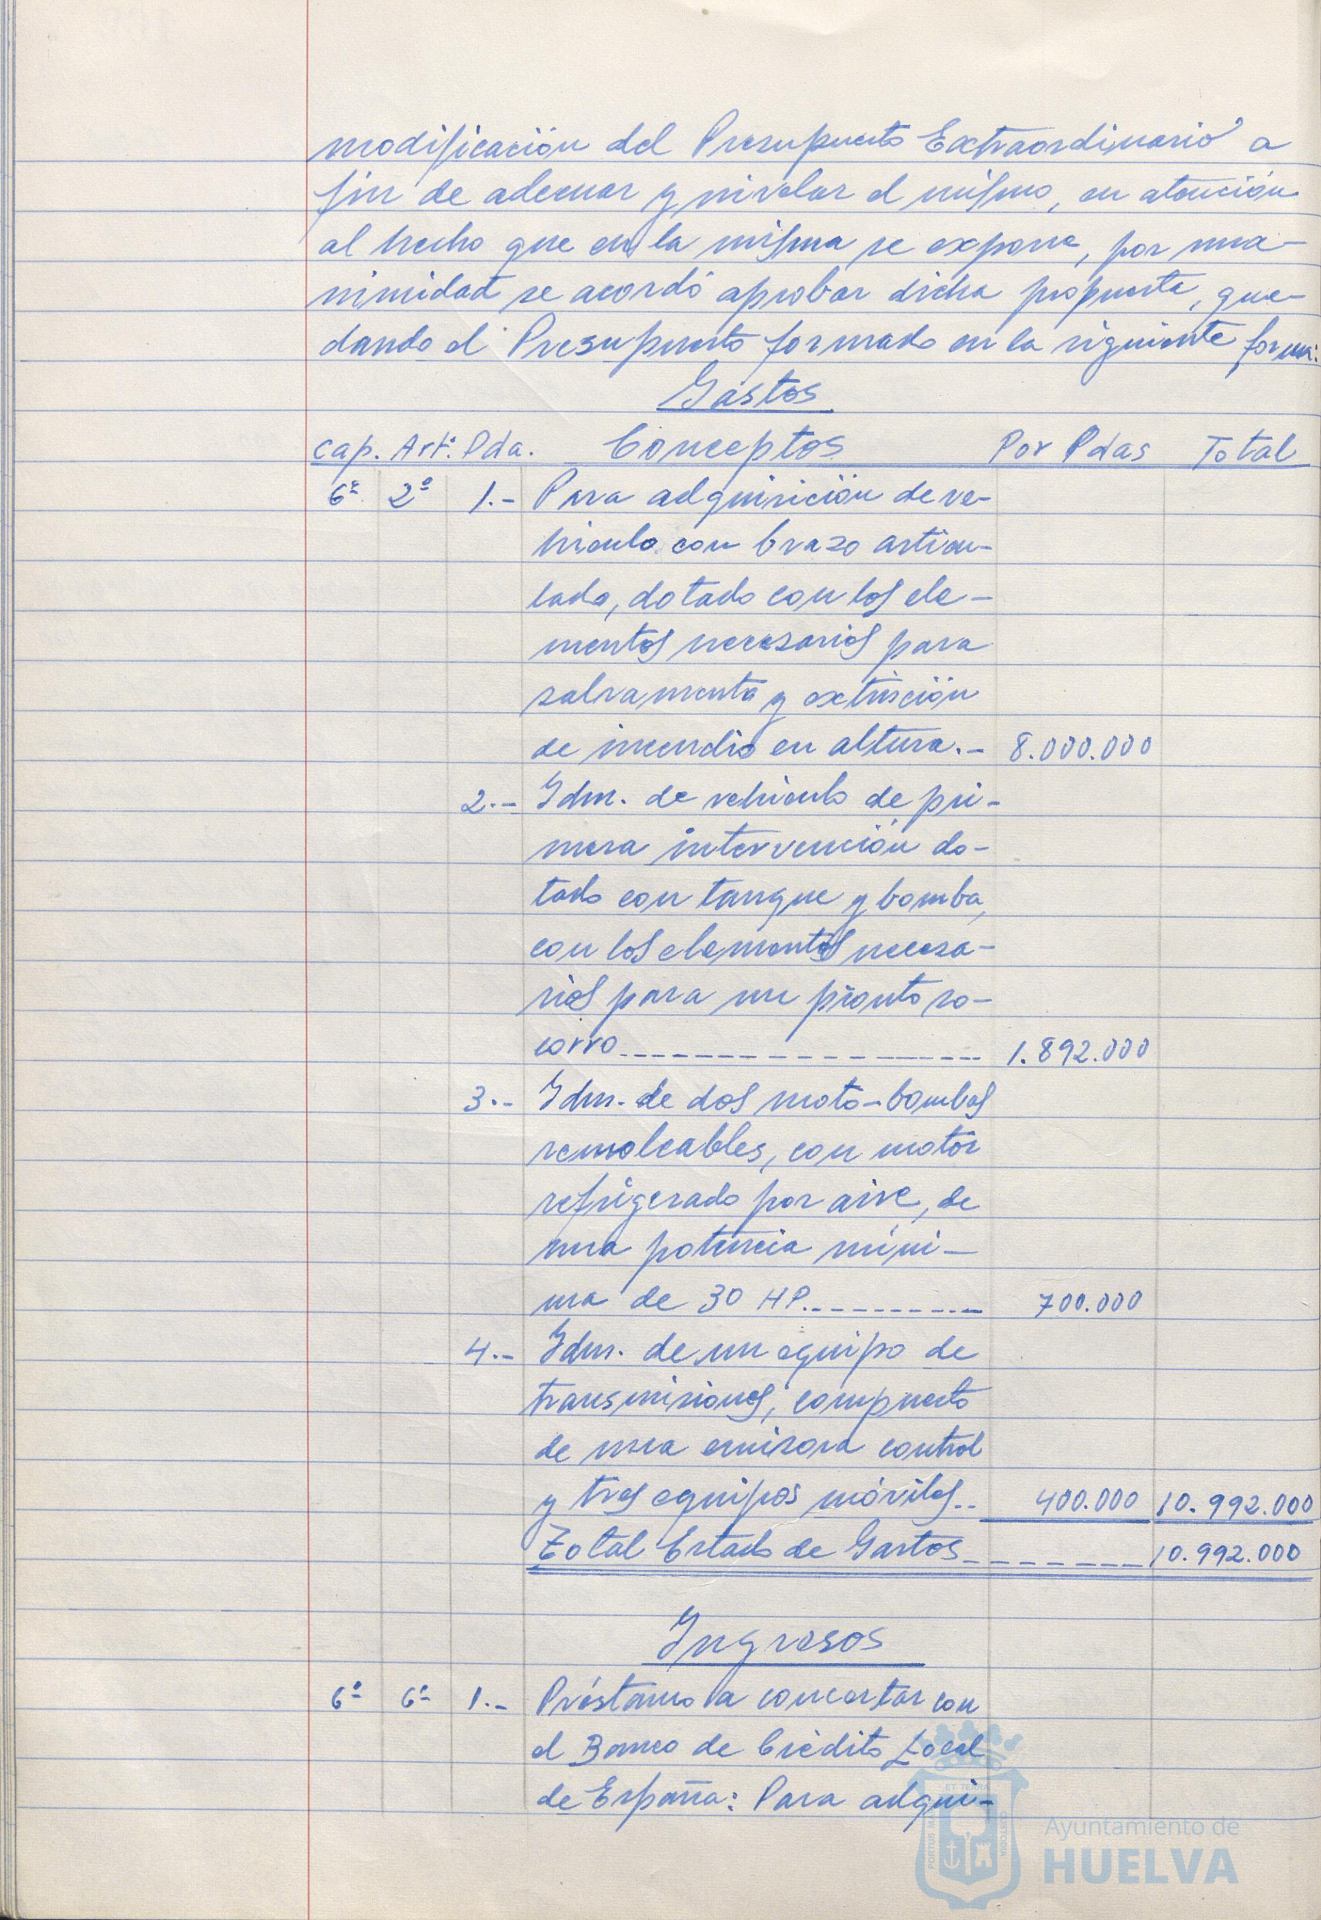 modificación del Presupuesto Extraordinario a
fin de adecuar y nivelar el mismo, en atención
al hecho que en la misma se expone, por una-
nimidad se acordó aprobar dicha propuesta, que-
dando el Presupuesto formado en la siguiente forma:
Gastos
Cap. Artº Pda. Conceptos Por Pdas Total
6º 2º 1.- Para adquisición de ve-
hiculo con brazo articu-
lado, dotado con los ele-
mentos necesarios para
salvamento y extinción
de incendio en altura.- 8.000.000
2.- Idm. de vehiculo de pri-
mera intervención do-
tado con tanque y bomba,
con los elementos necesa-
rios para un pronto so-
corro 1.892.000
3.- Idm. de dos moto-bombas
remolcables, con motor
refrigerado por aire, de
una potencia míni-
ma de 30 HP. 700.000
4.- Idm. de un equipo de
transmisiones, compuesto
de una emisora control
y tres equipos móviles.. 400.000 10.992.000
Total Estado de Gastos 10.992.000
Ingresos
6º 6º 1.- Préstamo a concertar con
el Banco de Crédito Local
de España: Para adqui-
Ayuntamiento de
HUELVA